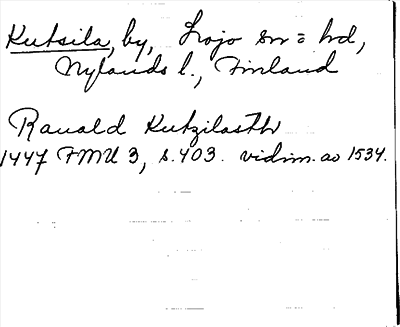 Kutsila, by, Lojo sn = hd,
Nylands l., Finland
Ranald Kutzilasth
1447 FMU 3, s. 403. vidim. av 1534.